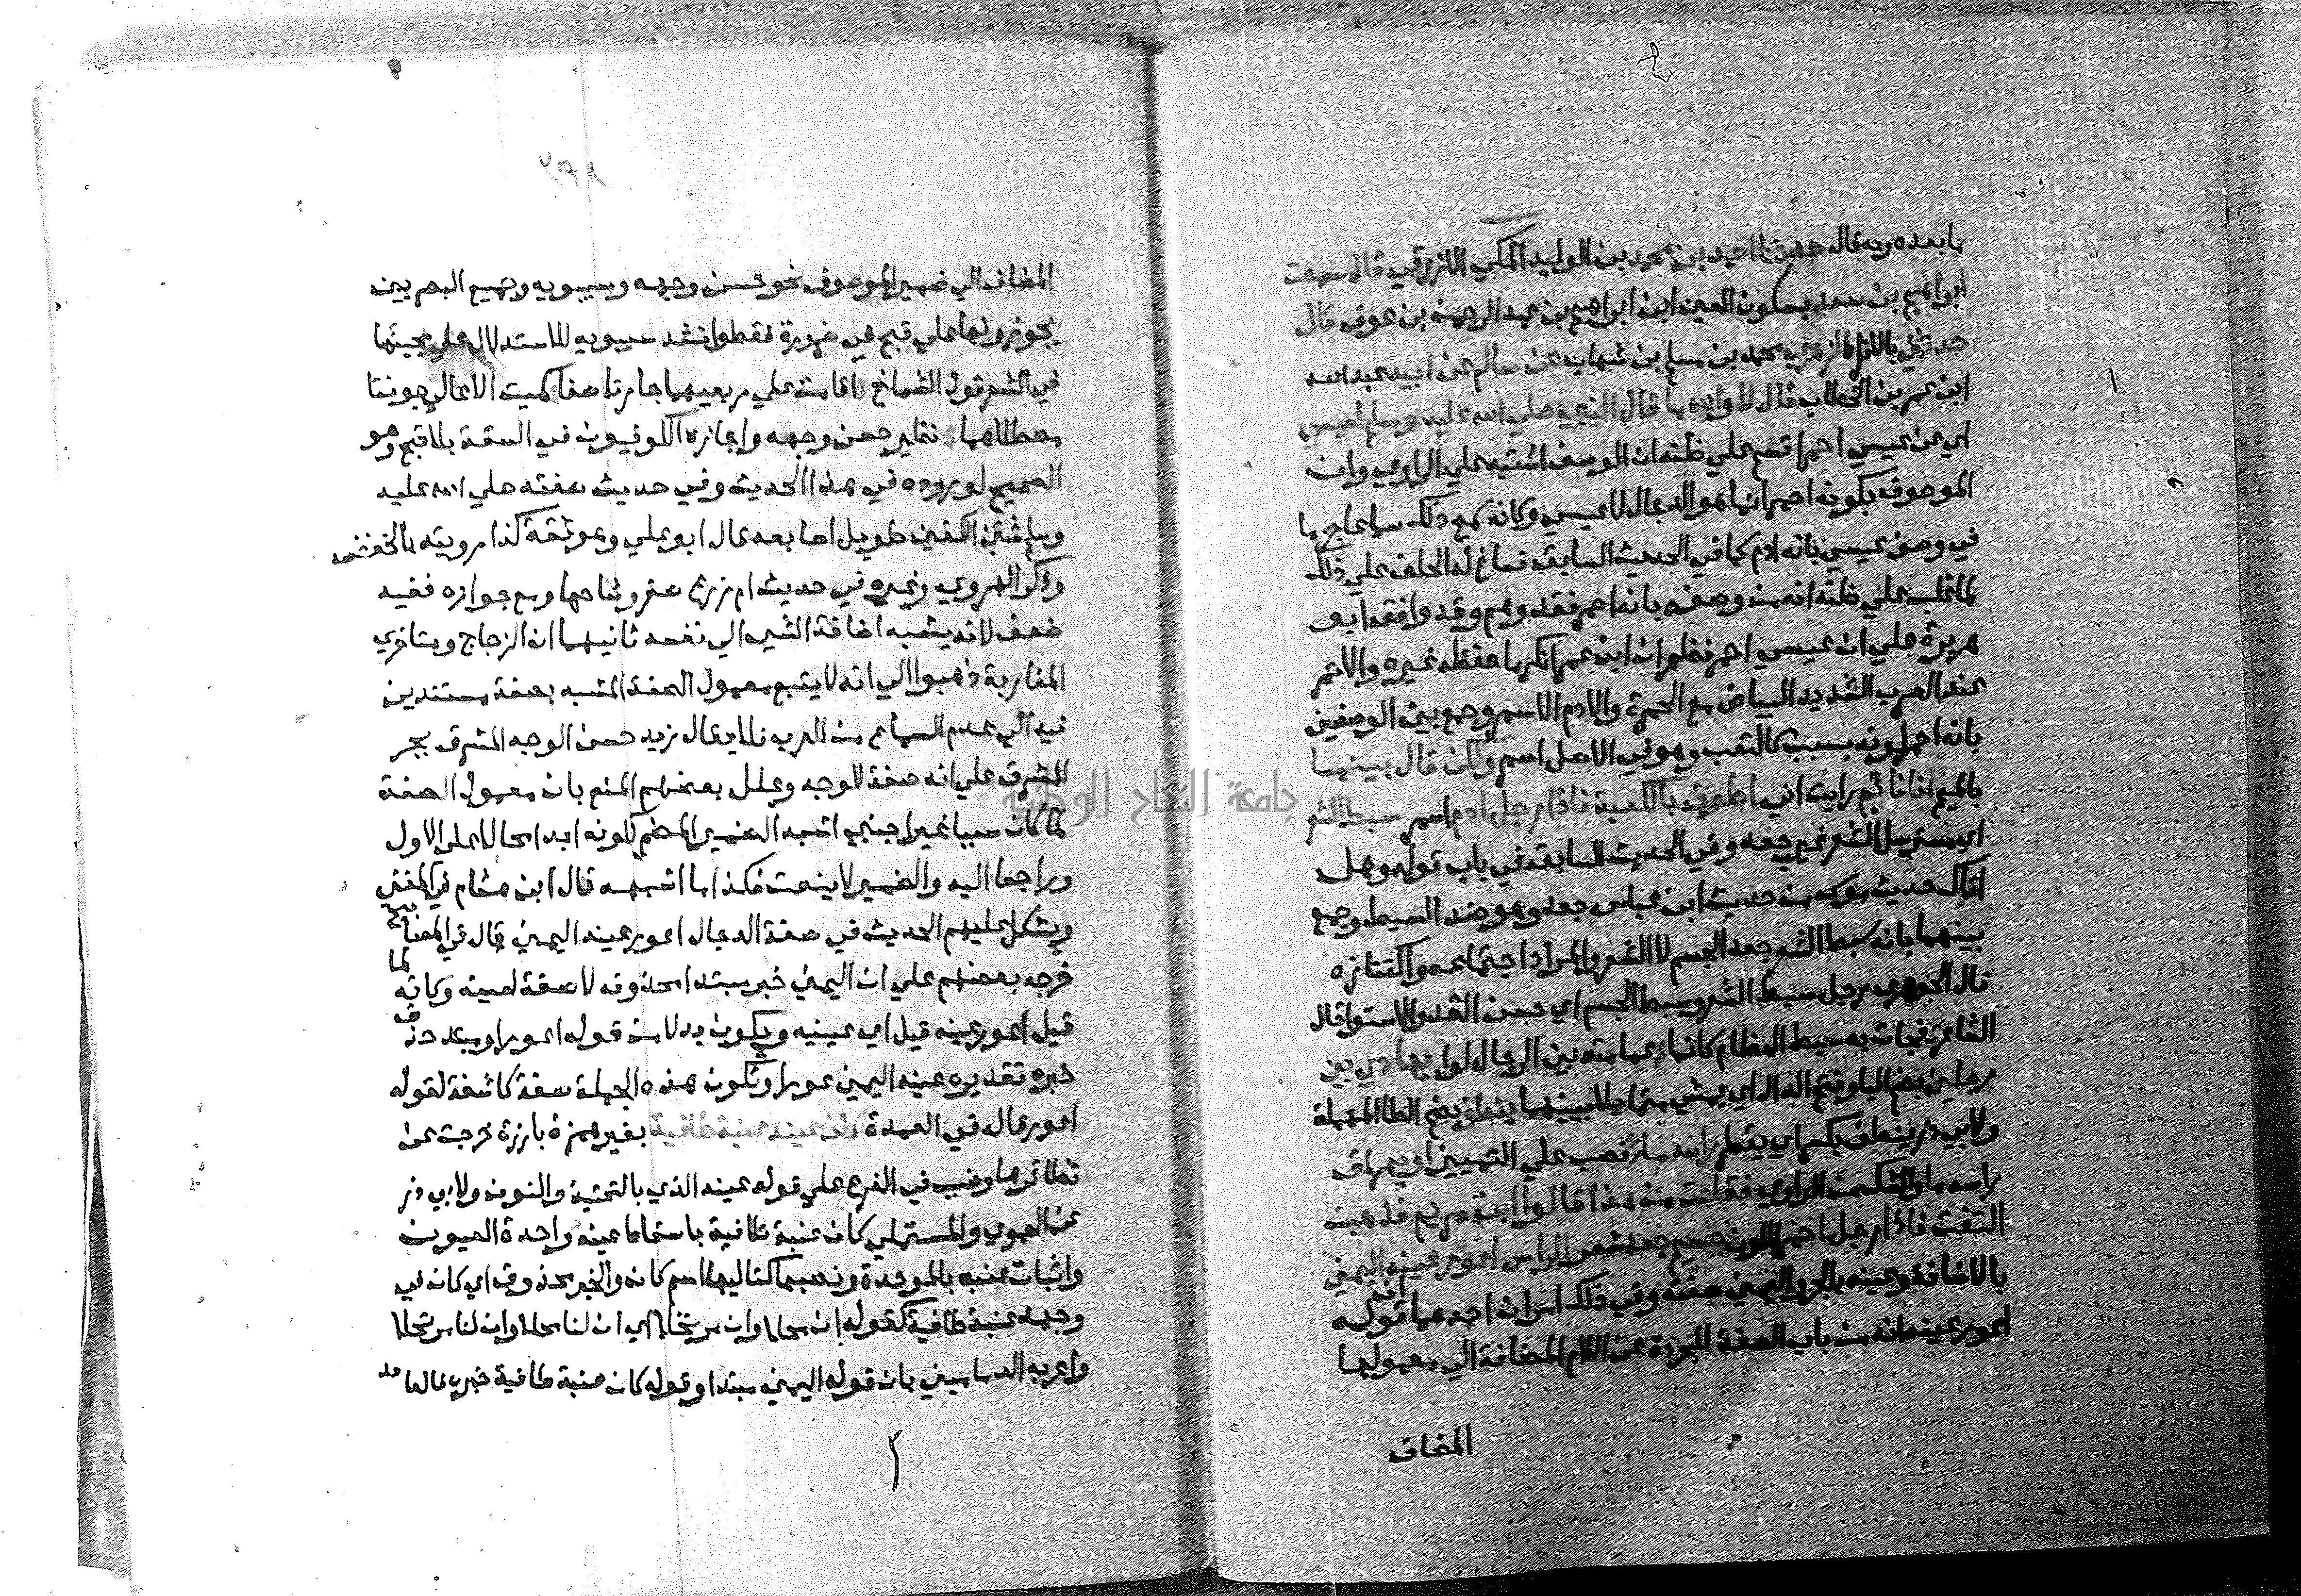 ما بعده وبه قال حدثنا احمد بن محمد بن الوليد المكي الازرقي قال سمعت
ابراهيم بن سعد بسكون العين ابن ابراهيم بن عبد الرحمن بن عوف قال
حدثني بالافراد الزهري محمد بن مسلم بن شهاب عن سالم عن ابيه عبد الله
ابن عمر بن الخطاب قال لا والله ما قال النبي صلي الله عليه وسلم لعيسي
اي عن عيسي احمر اقسم علي ظنه ان الوصف اشتبه علي الراوي وان
الموصوف بكونه احمر انما هو الدجال لا عيسي وكانه سمع ذلك سماعا جزما
في وصف عيسي بانه ادم كما في الحديث السابق فساغ له الحلف علي ذلك
لما غلب علي ظنه انه من وصفه بانه احمر فقد وهم وقد وافقه ابو
هريرة علي ان عيسي احمر فظهر ان ابن عمر انكر ما حفظه غيره والاحمر
عند العرب الشديد البياض مع الحمرة والادم الاسمر وجمع بين الوصفين
بانه احمر لونه بسبب كالتعب وهو في الاصل اسمر ولكن قال بينما
بالميم انا نائم رايت اني اطوف بالكعبة فاذا رجل ادم اسمر سبط الشعر
اي مسترسل الشعر غير جعد وفي الحديث السابق في باب قوله وهل
اتاك حديث موسي من حديث ابن عباس جعد وهو ضد السبط وجمع
بينهما بانه سبط الشعر جعد الجسم لا الشعر والمراد اجتماعه واكتنازه
قال الجوهري رجل سبط الشعر وسبط الجسم اي حسن القد والاستوا قال
الشاعر فجات به سبط العظام كانما عمامته بين الرجال لوا يهادي بين
رجلين بضم اليا وفتح الدال اي يمشي متمايلا بينهما ينطف بضم الطا المهملة
ولابي ذر ينطف بكسر اي يقطر راسه ما نصب علي التمييز او يهراق
راسه ما والشك من الراوي فقلت من هذا قالوا ابن مريم فذهبت
التفت فاذا رجل احمر اللون جسيم جعد شعر الراس اعور عينه اليمني
بالاضافة وعينه بالجر واليمني صفته وفي ذلك امران احدهما قوله
اعور عينه انه من باب الصفة المجردة عن اللام المضافة الي معمولها
المضاف
المضاف الي ضمير الموصوف نحو حسن وجهه وسيبويه وجميع البصريين
يجوزونها علي قبح في ضرورة فقط وانشد سيبويه للاستدلال علي مجيئها
في الشعر قول الشماخ اقامت علي ربعيهما جارتا صفا كميت الاعالي جونتا
مصطلاهما نظير حسن وجهه واجازه الكوفيون في السعة بلا قبح وهو
الصحيح لوروده في هذا الحديث وفي حديث صفته صلي الله عليه
وسلم شثن الكفين طويل اصابعه قال ابو علي وهو ثقة كذا رويته بالخفض
وذكر الهروي وغيره في حديث ام زرع صفر وشاحها ومع جوازه ففيه
ضعف لانه يشبه اضافة الشي الي نفسه ثانيهما ان الزجاج ومتاخري
المغاربة ذهبوا الي انه لا يتبع معمول الصفة المشبه بصفة مستندين
فيه الي عدم السماع من العرب فلا يقال زيد حسن الوجه المشرق بجر
المشرق علي انه صفة للوجه وعلل بعضهم المنع بان معمول الصفة
لما كان سببا غير اجنبي اشبه الضمير لكونه ابدا محالا علي الاول
وراجعا اليه والضمير لا ينعت فكذا ما اشبهه قال ابن هشام في المغني
ويشكل عليهم الحديث في صفة الدجال اعور عينه اليمني قال في المصابيح
خرجه بعضهم علي ان اليمني خبر مبتدا محذوف لا صفة لعينه وكانه لما
قيل اعور عينه قيل اي عينيه ويكون بدلا من قوله اعور او مبتدا حذف
خبره تقديره عينه اليمني عورا وتكون هذه الجملة صفة كاشفة لقوله
اعور قاله في العمدة كان عينه عنبة طافية بغير همزة بارزة خرجت عن
نظائرها وضبب في الفرع علي قوله عينه الذي بالتحتية والنون ولابي ذر
عن الحموي والمستملي كان عنبة طافية باسقاط عينه واحدة العيون
واثبات عنبه بالموحدة ونصبها كتاليها اسم كان والخبر محذوف اي كان في
وجهه عنبة طافية كقوله ان محلا وان مرتحلا اي ان لنا محلا وان لنا مرتحلا
واعربه الدماميني بان قوله اليمني مبتدا وقوله كان عنبة طافية خبره
٣٩٨
جامعة النجاح الوطنية